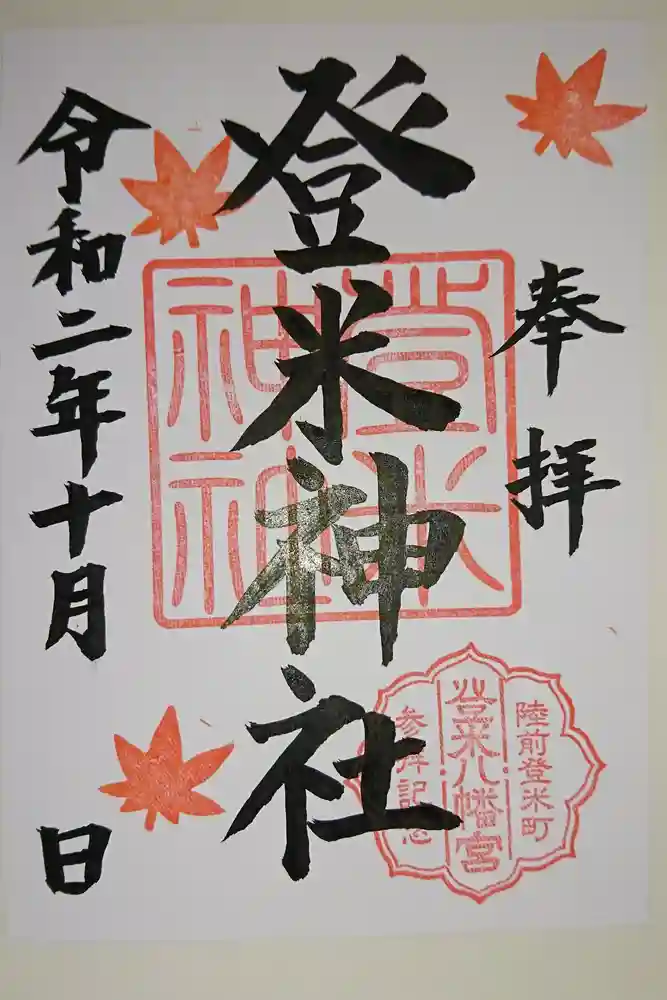 奉拝
登米神社
令和二年十月
日
登米
神社
陸前登米町
登米八幡宮
参拝記念